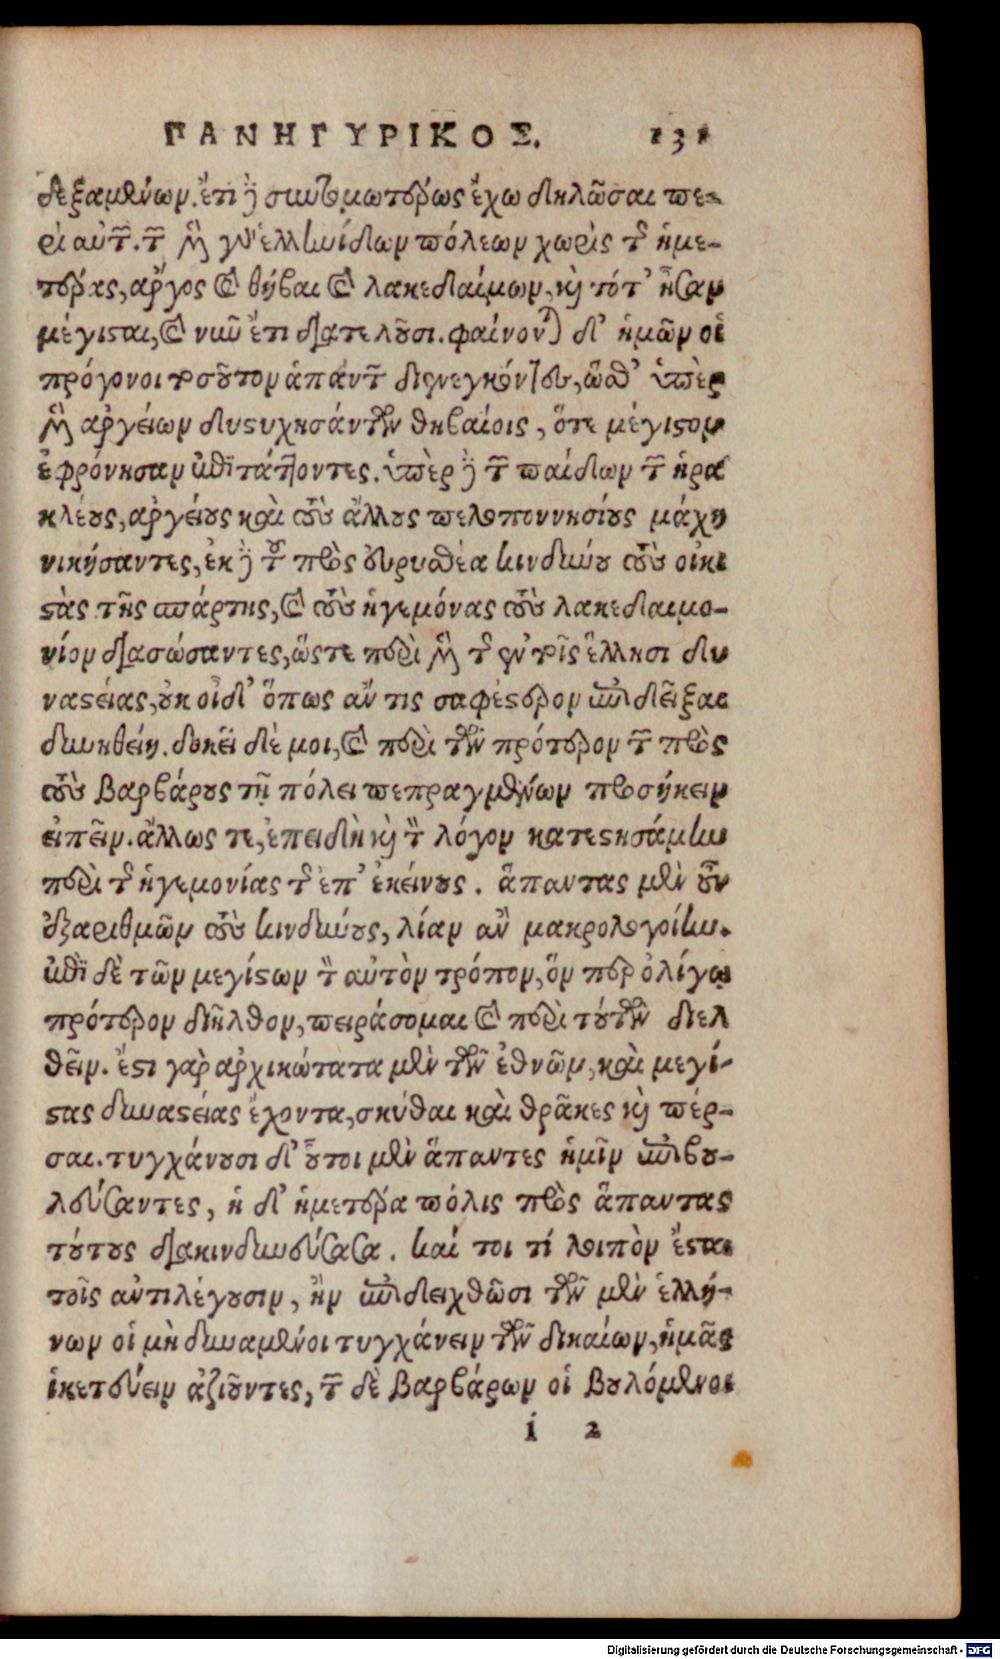 ΠΑΝΗΓΥΡΙΚΟΣ. 131
δεξαμένων. ἔτι δὲ συντομωτέρως ἔχω δηλῶσαι πε-
ρὶ αὐτῶν. τῶν μὲν γὰρ ἑλληνίδων πόλεων χωρὶς τῆς ἡμε-
τέρας, ἄργος καὶ θῆβαι καὶ λακεδαίμων, καὶ τότ' ἦσαν
μέγισται, καὶ νῦν ἔτι διατελοῦσι. φαίνονται δ' ἡμῶν οἱ
πρόγονοι τοσοῦτον ἁπάντων διενεγκόντες, ὥσθ' ὑπὲρ
μὲν ἀργείων δυστυχησάντων θηβαίοις, ὅτε μέγιστον
ἐφρόνησαν ἐπιτάττοντες. ὑπὲρ δὲ τῶν παίδων τῶν ἡρα
κλέους, ἀργείους καὶ τοὺς ἄλλους πελοποννησίους μάχῃ
νικήσαντες, ἐκ δὲ τοῦ πρὸς εὐρυσθέα κινδύνου τοὺς οἰκι
στὰς τῆς σπάρτης, καὶ τοὺς ἡγεμόνας τοὺς λακεδαιμο-
νίων διασώσαντες, ὥστε περὶ μὲν τῆς ἐν τοῖς ἕλλησι δυ
ναστείας, οὐκ οἶδ' ὅπως ἄν τις σαφέστερον ἐπιδεῖξαι
δυνηθείη. δοκεῖ δέ μοι, καὶ περὶ τῶν πρότερον τῶν πρὸς
τοὺς βαρβάρους τῇ πόλει πεπραγμένων προσήκειν
εἰπεῖν. ἄλλως τε, ἐπειδὴ καὶ τὸν λόγον κατεστησάμην
περὶ τῆς ἡγεμονίας τῆς ἐπ' ἐκείνους. ἅπαντας μὲν οὖν
ἐξαριθμῶν τοὺς κινδύνους, λίαν ἂν μακρολογοίην.
ἐπὶ δὲ τῶν μεγίστων τὸν αὐτὸν τρόπον, ὅν περ ὀλίγῳ
πρότερον διῆλθον, πειράσομαι καὶ περὶ τούτων διελ
θεῖν. ἔστι γὰρ ἀρχικώτατα μὲν τῶν ἐθνῶν, καὶ μεγί-
στας δυναστείας ἔχοντα, σκύθαι καὶ θρᾶκες καὶ πέρ-
σαι. τυγχάνουσι δ' οὗτοι μὲν ἅπαντες ἡμῖν ἐπιβου-
λεύσαντες, ἡ δ' ἡμετέρα πόλις πρὸς ἅπαντας
τούτους διακινδυνεύσασα. καί τοι τί λοιπὸν ἔσται
τοῖς ἀντιλέγουσιν, ἢν ἐπιδειχθῶσι τῶν μὲν ἑλλή-
νων οἱ μὴ δυναμένοι τυγχάνειν τῶν δικαίων, ἡμᾶς
ἱκετεύειν ἀξιοῦντες, τῶν δὲ βαρβάρων οἱ βουλόμενοι
i 2
Digitalisierung gefördert durch die Deutsche Forschungsgemeinschaft - DFG